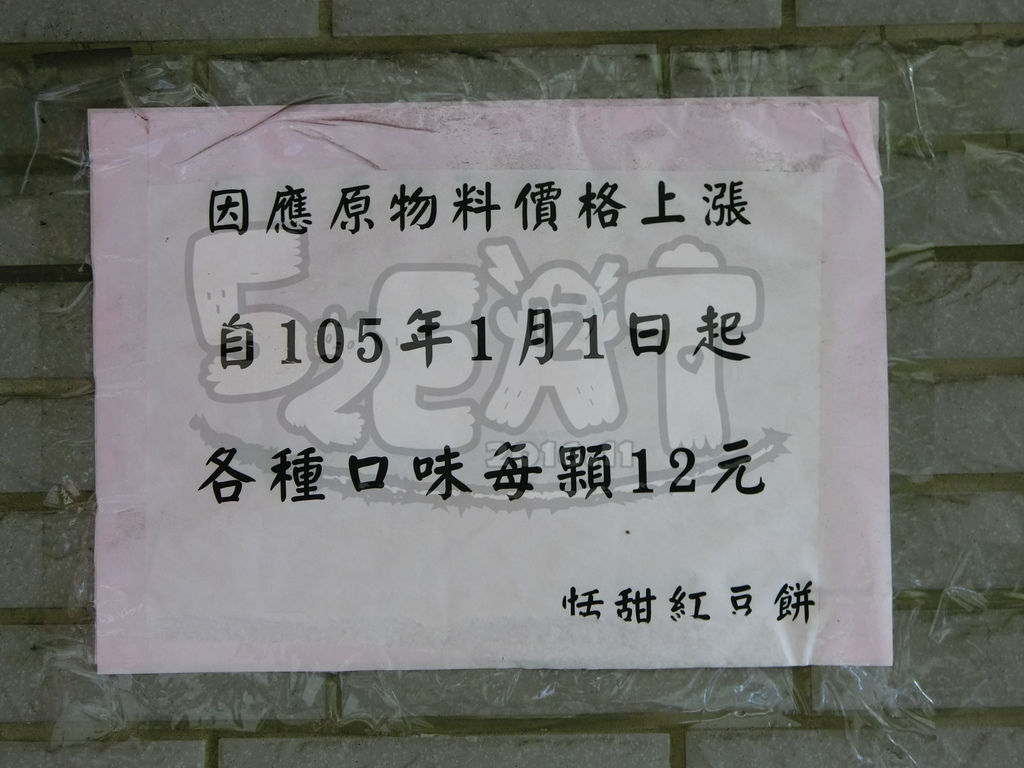 因應原物料價格上漲
自105年1月1日起
各種口味每顆12元
恬甜紅豆餅